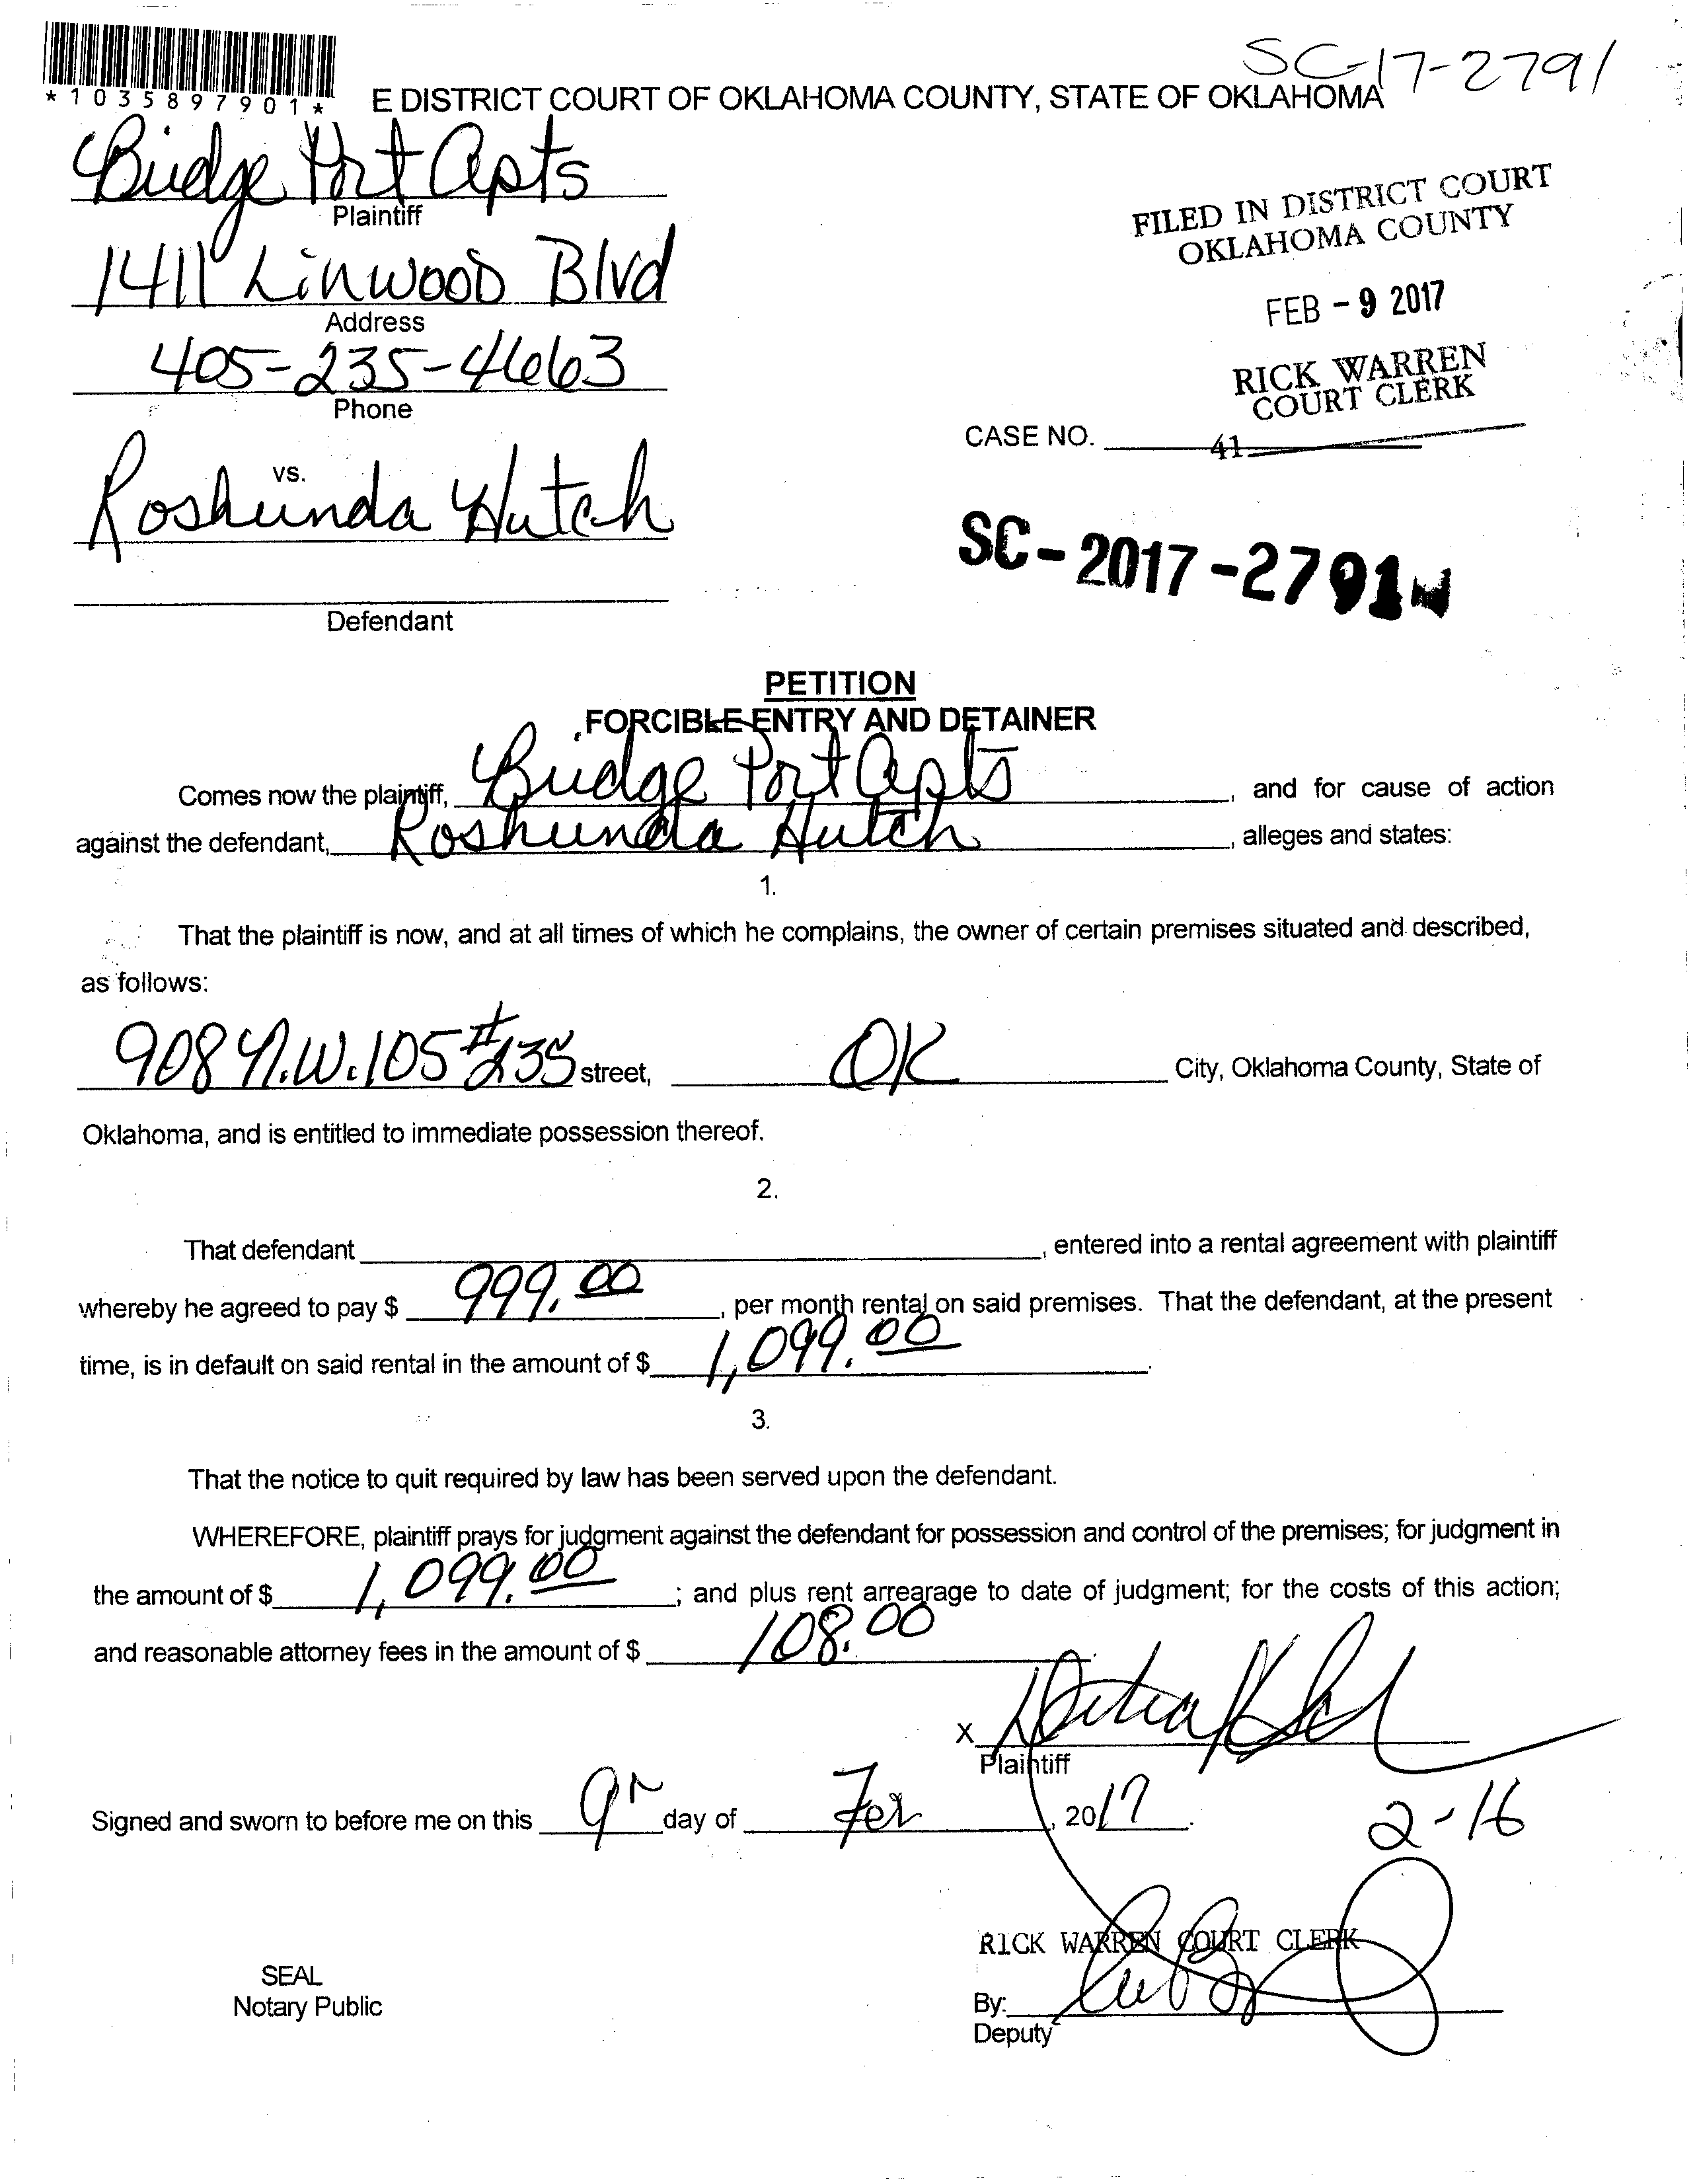 SC-17-2791
*1035897901*
E DISTRICT COURT OF OKLAHOMA COUNTY, STATE OF OKLAHOMA
Bridge Port Apts
Plaintiff
FILED IN DISTRICT COURT
OKLAHOMA COUNTY
1411 Linwood Blvd
Address
FEB - 9 2017
405-235-4663
Phone
RICK WARREN
COURT CLERK
CASE NO.
41
vs.
Roshunda Hutch
SC-2017-2791
Defendant
PETITION
FORCIBLE ENTRY AND DETAINER
Comes now the plaintiff, Bridge Port Apts, and for cause of action
against the defendant, Roshunda Hutch, alleges and states:
1.
That the plaintiff is now, and at all times of which he complains, the owner of certain premises situated and described,
as follows:
908 N.W. 105 #235 street, OK City, Oklahoma County, State of
Oklahoma, and is entitled to immediate possession thereof.
2.
That defendant , entered into a rental agreement with plaintiff
whereby he agreed to pay $ 999.00, per month rental on said premises. That the defendant, at the present
time, is in default on said rental in the amount of $ 1,099.00.
3.
That the notice to quit required by law has been served upon the defendant.
WHEREFORE, plaintiff prays for judgment against the defendant for possession and control of the premises; for judgment in
the amount of $ 1,099.00; and plus rent arrearage to date of judgment; for the costs of this action;
and reasonable attorney fees in the amount of $ 108.00.
X
Plaintiff
Signed and sworn to before me on this 9 day of Feb, 2017.
2-16
RICK WARREN COURT CLERK
SEAL
Notary Public
By:
Deputy